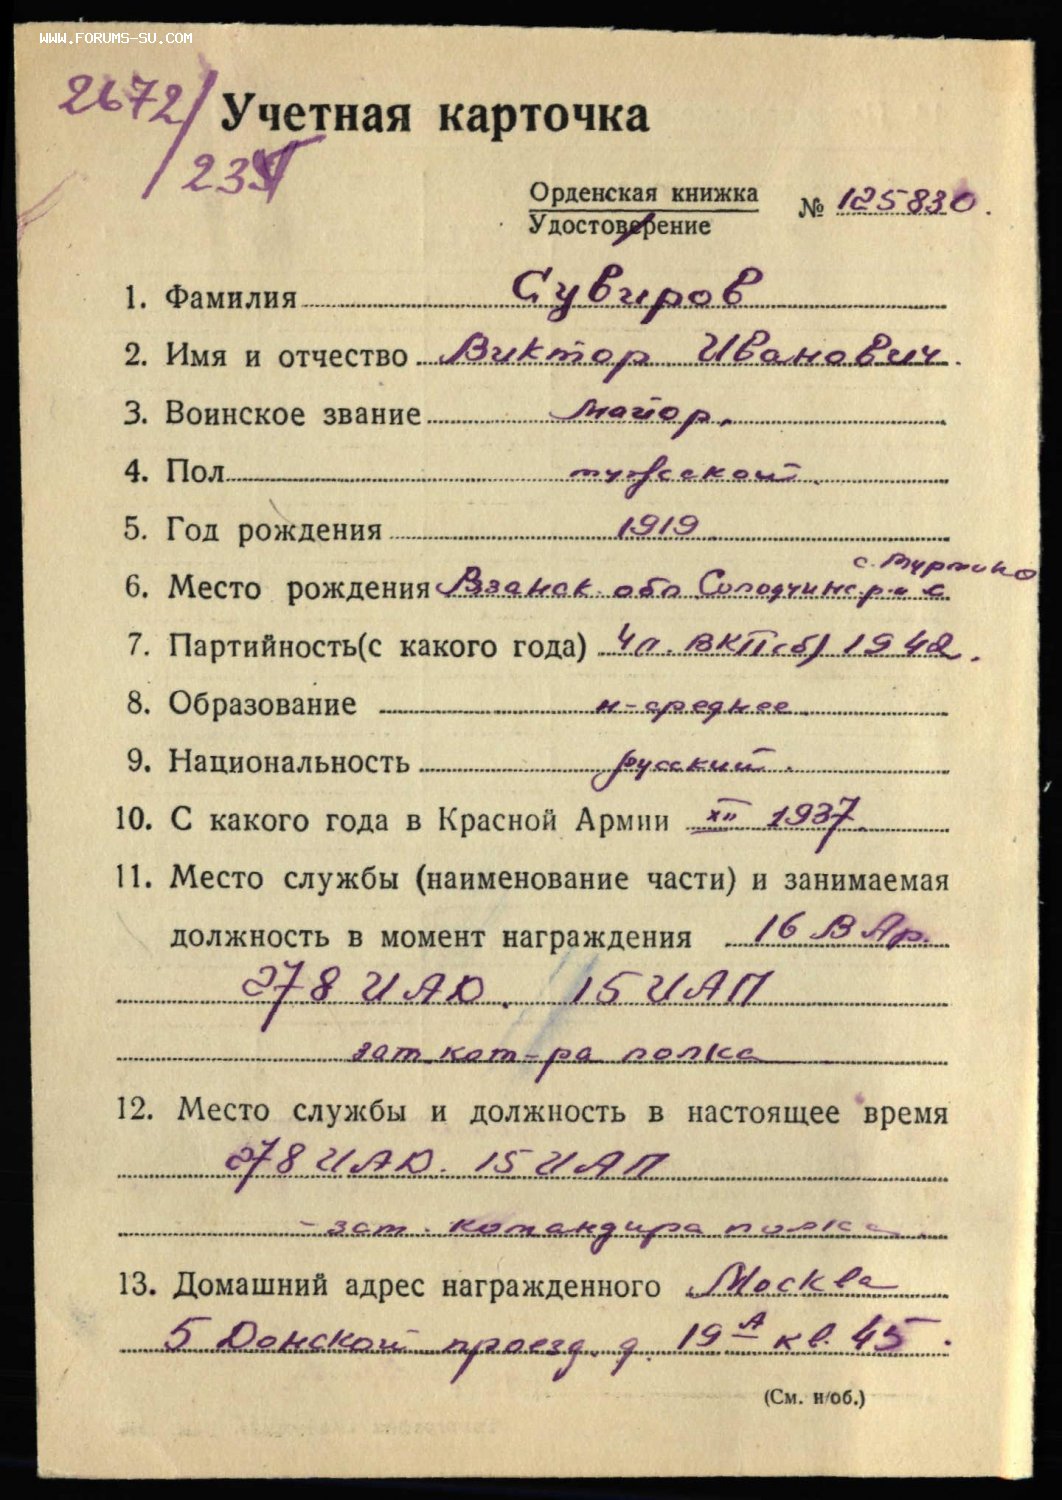 WWW.FORUMS-SU.COM
2672/
235
Учетная карточка
Орденская книжка
Удостоверение
№ 125830.
1. Фамилия Сувиров
2. Имя и отчество Виктор Иванович.
3. Воинское звание майор.
4. Пол мужской.
5. Год рождения 1919
с.
6. Место рождения Рязанск. обл Солодчинс. р-н с
7. Партийность(с какого года) Чл. ВКП(б) 1942.
8. Образование н-среднее.
9. Национальность русский.
10. С какого года в Красной Армии XII 1937.
11. Место службы (наименование части) и занимаемая
должность в момент награждения 16 В Ар.
278 ИАД. 15 ИАП
зам. ком-ра полка
12. Место службы и должность в настоящее время
278 ИАД. 15 ИАП
- зам. командира полка.
13. Домашний адрес награжденного Москва
5 Донской проезд. д. 19 А кв. 45.
(См. н/об.)